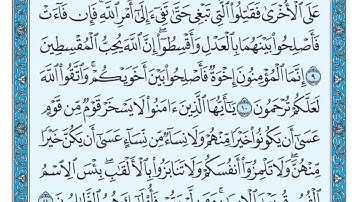 عَلَى ٱلْأُخْرَىٰ فَقَٰتِلُوا۟ ٱلَّتِى تَبْغِى حَتَّىٰ تَفِىٓءَ إِلَىٰٓ أَمْرِ ٱللَّهِ ۚ فَإِن فَآءَتْ
فَأَصْلِحُوا۟ بَيْنَهُمَا بِٱلْعَدْلِ وَأَقْسِطُوٓا۟ ۖ إِنَّ ٱللَّهَ يُحِبُّ ٱلْمُقْسِطِينَ
٩ إِنَّمَا ٱلْمُؤْمِنُونَ إِخْوَةٌ فَأَصْلِحُوا۟ بَيْنَ أَخَوَيْكُمْ ۚ وَٱتَّقُوا۟ ٱللَّهَ
لَعَلَّكُمْ تُرْحَمُونَ ١٠ يَٰٓأَيُّهَا ٱلَّذِينَ ءَامَنُوا۟ لَا يَسْخَرْ قَوْمٌ مِّن قَوْمٍ
عَسَىٰٓ أَن يَكُونُوا۟ خَيْرًا مِّنْهُمْ وَلَا نِسَآءٌ مِّن نِّسَآءٍ عَسَىٰٓ أَن يَكُنَّ خَيْرًا
مِّنْهُنَّ ۖ وَلَا تَلْمِزُوٓا۟ أَنفُسَكُمْ وَلَا تَنَابَزُوا۟ بِٱلْأَلْقَٰبِ ۖ بِئْسَ ٱلِٱسْمُ